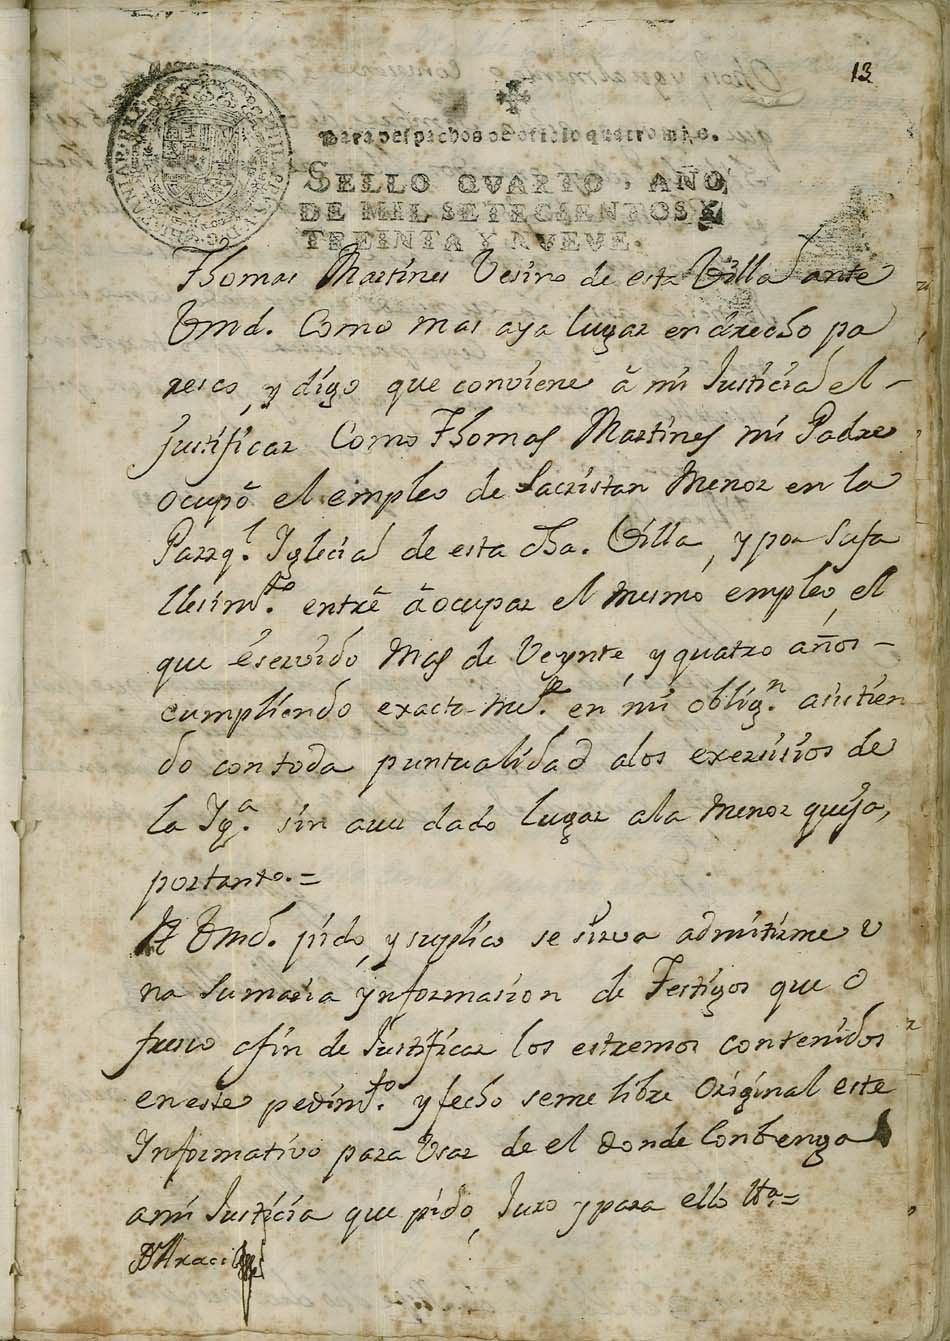 13
Para despachos de oficio quatro mrs.
SELLO QVARTO, AÑO
DE MIL SETECIENTOS Y
TREINTA Y NVEVE.
Thomas Martines Vesino de esta Villa ante
Vmd. Como mas aya lugar en drecho pa
resco, y digo que conviene â mi Justicia el -
justificar Como Thomas Martines mi Padre
ocupô el empleo de Sacristan Menor en la
Parrql. Yglecia de esta dha. Villa, y por su fa
llesimto. entrê â ocupar el mismo empleo, el
que ê servido mas de Veynte y quatro años -
cumpliendo exacta-mte. en mi oblign. asistien
do con toda puntualidad a los exersisios de
la Yga. sin aver dado lugar a la menor queja,
por tanto. =
A Vmd. pido, y suplico se sirva admitirme v
na Sumaria ynformasion de Testigos que o
fresco afin de Justificar los estremos contenidos
en este pedimto. y fecho se me libre Original este
Informativo para Vsar de el donde Conbenga
a mi Justicia que pido, Juro y para ello Va. =